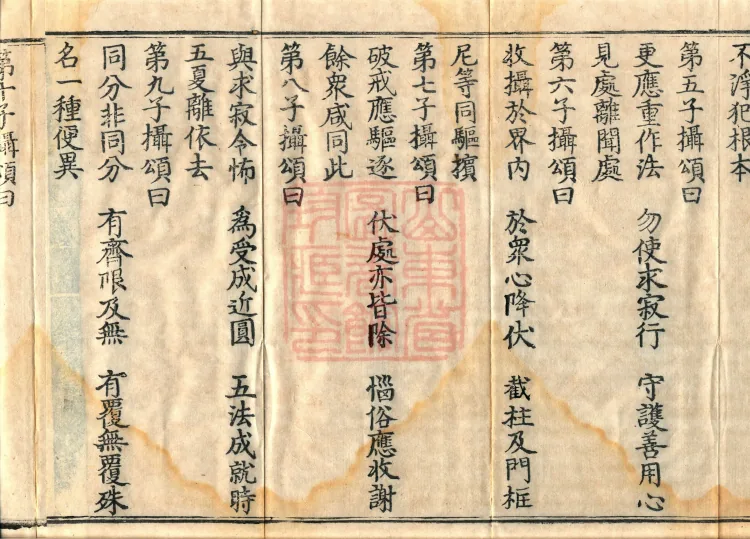 不淨犯根本
第五子攝頌曰
更應重作法 勿使求寂行 守護善用心
見處離聞處
第六子攝頌曰
收攝於界內 於眾心降伏 截柱及門框
尼等同驅擯
第七子攝頌曰
破戒應驅逐 伏處亦皆除 惱俗應收謝
餘眾咸同此
第八子攝頌曰
與求寂令怖 為受成近圓 五法成就時
五夏離依去
第九子攝頌曰
同分非同分 有齊限及無 有覆無覆殊
名一種便異
第十子攝頌曰